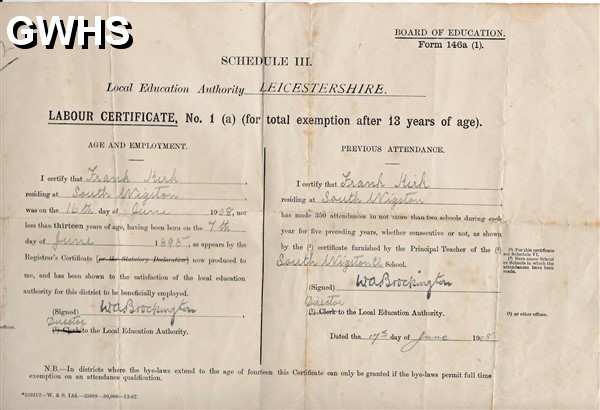 GWHS
BOARD OF EDUCATION.
Form 146a (1).
SCHEDULE III.
Local Education Authority LEICESTERSHIRE.
LABOUR CERTIFICATE, No. 1 (a) (for total exemption after 13 years of age).
AGE AND EMPLOYMENT.
I certify that Frank Kirk,
residing at South Wigston
was on the 16th day of June 1908, not
less than thirteen years of age, having been born on the 7th
day of June 1895, as appears by the
Registrar's Certificate [or the Statutory Declaration] now produced to
me, and has been shown to the satisfaction of the local education
authority for this district to be beneficially employed.
(Signed) WA Brockington
Director
(¹) Clerk to the Local Education Authority.
PREVIOUS ATTENDANCE.
I certify that Frank Kirk,
residing at South Wigston
has made 350 attendances in not more than two schools during each
year for five preceding years, whether consecutive or not, as shown
by the (²) certificate furnished by the Principal Teacher of the (³)
South Wigston C. School.
(Signed) WA Brockington
Director
(¹) Clerk to the Local Education Authority.
Dated the 17th day of June 1908
(²) For this certificate
see Schedule VI.
(³) Here name School
or Schools in which the
attendances have been
made.
(¹) or other officer.
officer.
N.B.—In districts where the bye-laws extend to the age of fourteen this Certificate can only be granted if the bye-laws permit full time
exemption on an attendance qualification.